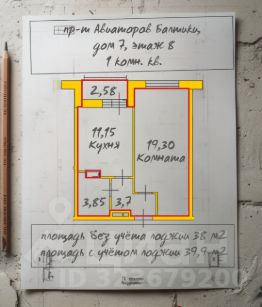 пр-т Авиаторов Балтики,
дом 7, этаж 8
1 комн. кв.
2,58
11,15
Кухня
19,30
Комната
3,85
3,7
площадь без учёта лоджии 38 м2
площадь с учетом лоджии 39,9 м2